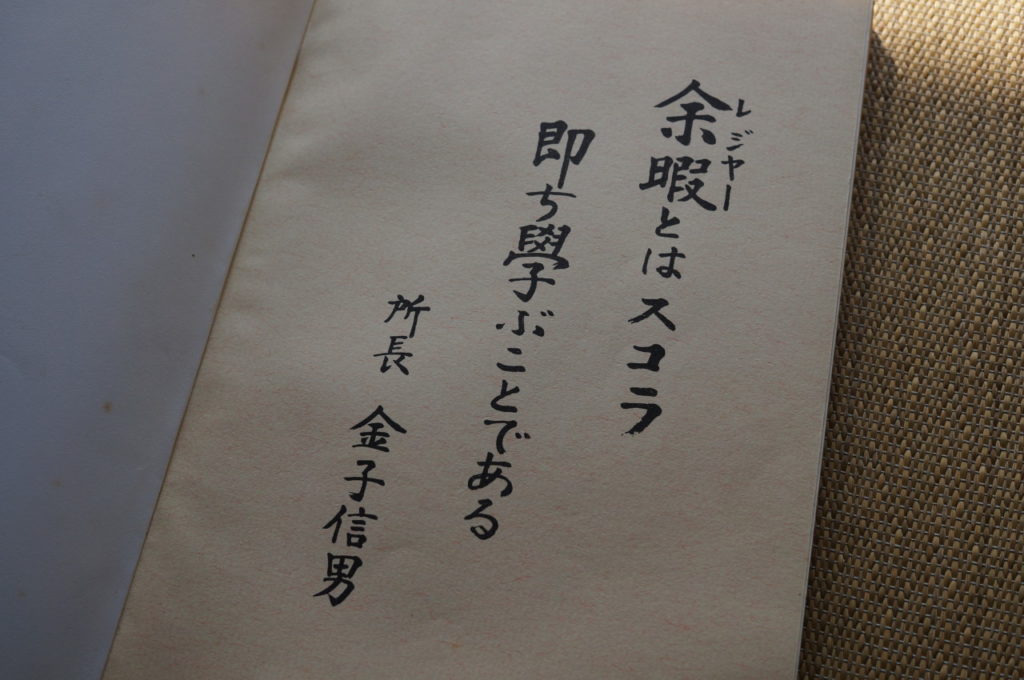 余暇とはスコラ
レジャー
即ち學ぶことである
所長 金子信男